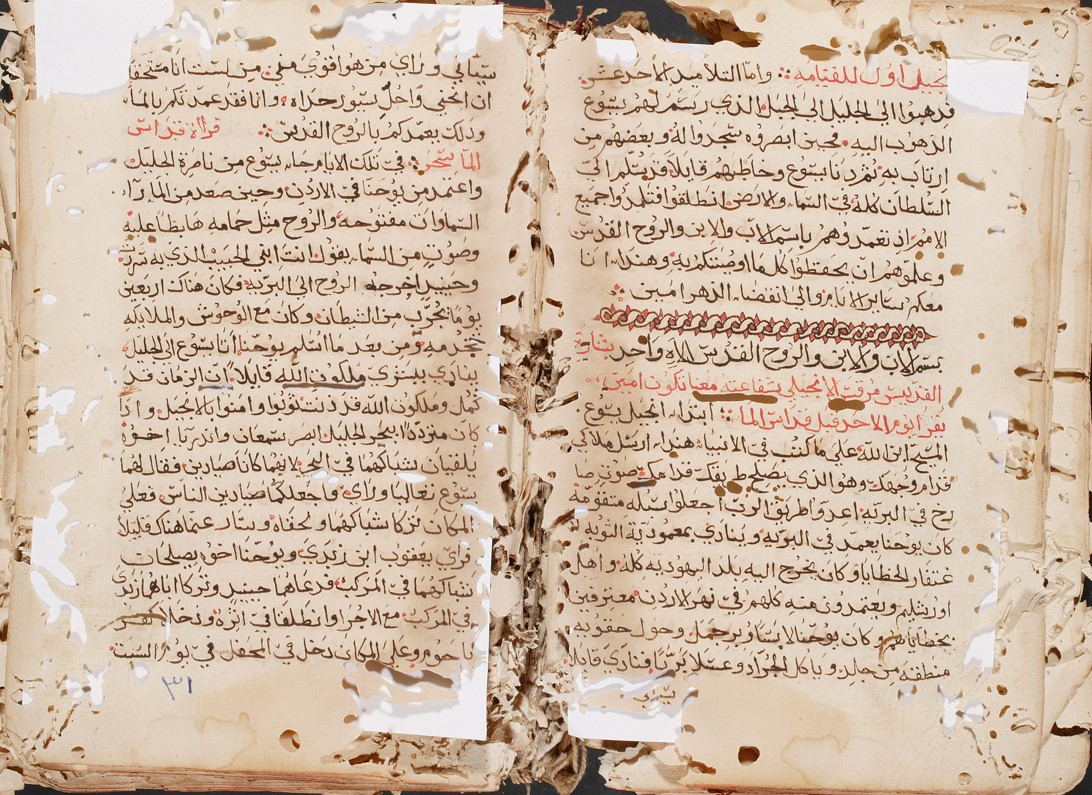 انجيل اول للقيامه ⁘ واما التلاميد الاحد عشر
فدهبوا الى الجليل الى الجبل الذي رسم لهم يسوع
الدهوب اليه فحين ابصروه سجدوا له وبعضهم من
ارتاب به ثم دنا يسوع وخاطبهم قايلا قد سلم الى
السلطان كله في السما والارض انطلقوا فتلمدوا جميع
الامم اذ تعمدونهم باسم الاب والابن والروح القدس
وعلموهم ان يحفظوا كل ما اوصيتكم به وهذا انا
معكم ساير الايام والى انقضا الدهر امين
بسم الاب والابن والروح القدس الاه واحد بشارة
القديس مرقس الانجيلي شفاعته معنا تكون امين
يقرا يوم الاحد قبل قداس الما ⁘ ابتداء انجيل يسوع
المسيح ابن الله على ما كتب في الانبيا هنداء ارسل ملاكي
قدام وجهك وهو الذي يصلح طريقك قدامك صوت صا
رخ في البريه اعدوا طريق الرب اجعلوا سبله متقومه
كان يوحنا يعمد في البريه وينادي بمعمودية التوبه لا
غتفار الخطايا وكان يخرج اليه بلد اليهوديه كله واهل
اورشليم ويعتمدون منه كلهم في نهر الاردن معترفين
بخطاياهم وكان يوحنا لابسا وبر جمل وحول حقويه
منطقه من جلد وياكل الجراد وعسلا بريا ونادى قايلا
سيتي
سيتاتي وراي من هو اقوى مني من لست انا مستحقا
ان انحني واحل سيور حداه وانا فقد عمدتكم بالماء
وذلك يعمدكم بالروح القدس ⁘ قراه الا قداس
الما سحر ⁘ في تلك الايام جاء يسوع من ناصرة الجليل
واعتمد من يوحنا في الاردن وحين صعد من الما راء
السماوات مفتوحه والروح مثل حمامه هابطا عليه
وصوت من السما يقول انت ابني الحبيب الذي به سررت
وحينيد اخرجه الروح الى البريه وكان هناك اربعين
يوما يجرب من الشيطان وكان مع الوحوش والملايكه
تخدمه ومن بعد ما اسلم يوحنا اتا يسوع الى الجليل
ينادي ببشرى ملكوت الله قايلا ان الزمان قد
كمل وملكوت الله قد دنت فتوبوا وامنوا بالانجيل واذ
كان مترددا ببحر الجليل ابصر سمعان واندريا اخوه
يلقيان شباكهما في البحر لانهما كانا صيادين فقال لهما
يسوع تعاليا وراي واجعلكما صيادين الناس فعلى
المكان تركا شباكهما ولحقاه وسار عما هناك قليلا
فراي يعقوب ابن زبدي ويوحنا اخوه يصلحان
شباكهما في المركب فدعاهما حينيد وتركا اباهما زبدي
في المركب مع الاجرا وانطلقا في اثره ودخلا كفر
ناحوم وعلى المكان دخل في المحفل في يوم السبت
٣١